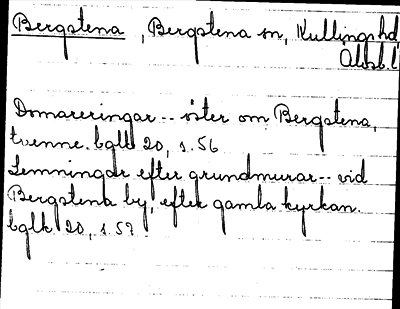 Bergstena, Bergstena sn, Kullings hd
Älvsb.l
Domareringar -- öster om Bergstena,
tvenne. bglk 20, s. 56
Lemningar efter grundmurar -- vid
Bergstena by, efter gamla kyrkan.
bglk 20, s. 57